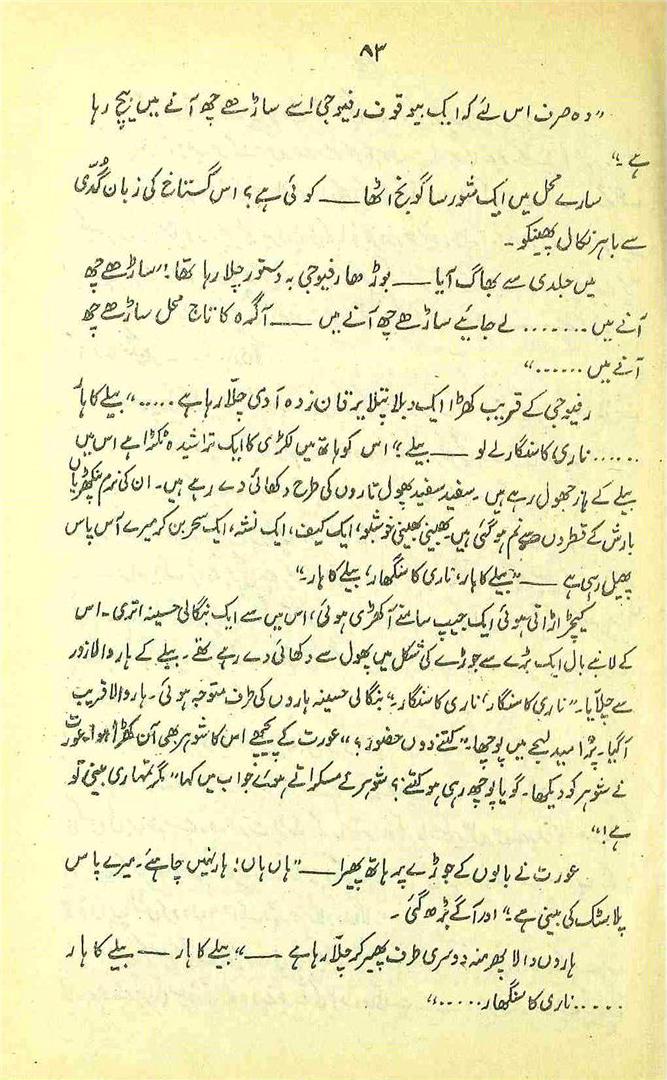 ۸۳
"وہ صرف اس لئے کہ ایک بیوقوف رفیوجی اسے ساڑھے چھ آنے میں بیچ رہا
ہے۔"
سارے محل میں ایک شور سا گونج اٹھا ــــ کوئی ہے؟ اس گستاخ کی زبان گُدّی
سے باہر نکال پھینکو۔
میں جلدی سے بھاگ آیا ــــ بوڑھا رفیوجی بہ دستور چلا رہا تھا! "ساڑھے چھ
آنے میں ....... لے جائیے ساڑھے چھ آنے میں ــــ آگرہ کا تاج محل ساڑھے چھ
آنے میں ......"
رفیوجی کے قریب کھڑا ایک دبلا پتلا یرقان زدہ آدمی چلّا رہا ہے ..... "بیلے کا ہار
...... ناری کا سنگار لے لو ــــ بیلے؟" اس کو ہاتھ میں لکڑی کا ایک تراشیدہ ٹکڑا ہے اس میں
بیلے کے ہار جھول رہے ہیں۔ سفید سفید پھول تاروں کی طرح دکھائی دے رہے ہیں۔ ان کی نرم پنکھڑیاں
بارش کے قطروں سے نم ہو گئی ہیں۔ بھینی بھینی خوشبو، ایک کیف، ایک نشہ، ایک سحر بن کر میرے آس پاس
پھیل رہی ہے ــــ "بیلے کا ہار، ناری کا سنگھار، بیلے کا ہار۔"
کیچڑ اڑاتی ہوئی ایک جیپ سامنے آ کھڑی ہوئی، اس میں سے ایک بنگالی حسینہ اتری۔ اس
کے لانبے بال ایک بڑے سے جوڑے کی شکل میں پھول سے دکھائی دے رہے تھے۔ بیلے کے ہار والا زور
سے چلّایا۔ "ناری کا سنگار، ناری کا سنگار۔" بنگالی حسینہ ہاروں کی طرف متوجہ ہوئی۔ ہار والا قریب
آ گیا۔ پُر امید لہجے میں پوچھا۔ "کتنے دوں حضور؟" عورت کے پیچھے اس کا شوہر بھی آن کھڑا ہوا۔ عورت
نے شوہر کو دیکھا۔ گویا پوچھ رہی ہو کتنے؟ شوہر نے مسکراتے ہوئے جواب میں کہا "مگر تمہاری بینی تو
ہے!"
عورت نے بالوں کے جوڑے پر ہاتھ پھیرا ــــ "ہاں ہاں! ہار نہیں چاہئے۔ میرے پاس
پلاسٹک کی بینی ہے۔" اور آگے بڑھ گئی۔
ہاروں والا پھر منہ دوسری طرف پھیر کر چلّا رہا ہے ــــ "بیلے کا ہار ــــ بیلے کا ہار
..... ناری کا سنگھار ....."